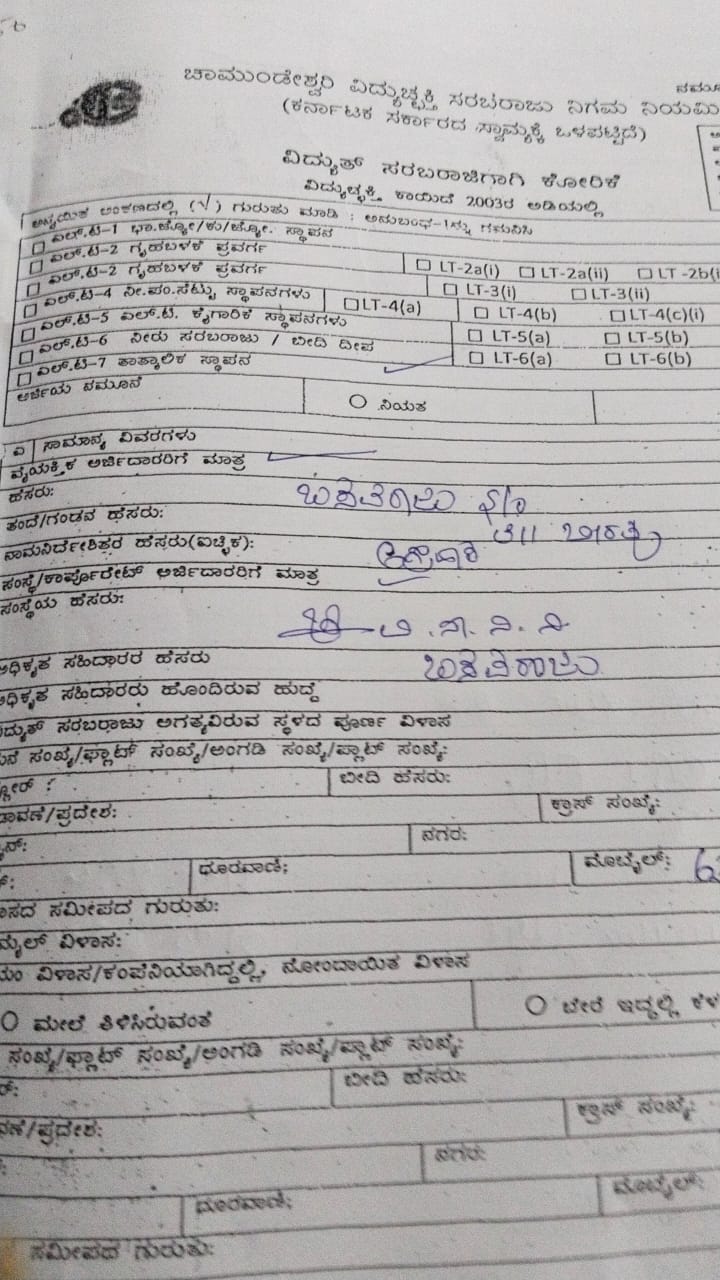 ಚಾಮುಂಡೇಶ್ವರಿ ವಿದ್ಯುಚ್ಛಕ್ತಿ ಸರಬರಾಜು ನಿಗಮ ನಿಯಮಿ
(ಕರ್ನಾಟಕ ಸರ್ಕಾರದ ಸ್ವಾಮ್ಯಕ್ಕೆ ಒಳಪಟ್ಟಿದೆ)
ವಿದ್ಯುತ್ ಸರಬರಾಜಿಗಾಗಿ ಕೋರಿಕೆ
ವಿದ್ಯುಚ್ಛಕ್ತಿ ಕಾಯಿದೆ 2003ರ ಅಡಿಯಲ್ಲಿ
ಅನ್ವಯಿತ ಅಂಕಣದಲ್ಲಿ (√) ಗುರುತು ಮಾಡಿ : ಅನುಬಂಧ-1ನ್ನು ಗಮನಿಸಿ
ಎಲ್.ಟಿ-1 ಭಾ.ಜ್ಯೋ/ಕು/ಜ್ಯೋ. ಸ್ಥಾಪನ
ಎಲ್.ಟಿ-2 ಗೃಹಬಳಕೆ ಪ್ರವರ್ಗ LT-2a(i) LT-2a(ii) LT -2b(i
ಎಲ್.ಟಿ-2 ಗೃಹಬಳಕೆ ಪ್ರವರ್ಗ LT-3(i) LT-3(ii)
ಎಲ್.ಟಿ-4 ನೀ.ಪಂ.ಸೆಟ್ಟು ಸ್ಥಾಪನಗಳು LT-4(a) LT-4(b) LT-4(c)(i)
ಎಲ್.ಟಿ-5 ಎಲ್.ಟಿ. ಕೈಗಾರಿಕೆ ಸ್ಥಾಪನಗಳು LT-5(a) LT-5(b)
ಎಲ್.ಟಿ-6 ನೀರು ಸರಬರಾಜು / ಬೀದಿ ದೀಪ LT-6(a) LT-6(b)
ಎಲ್.ಟಿ-7 ತಾತ್ಕಾಲಿಕ ಸ್ಥಾಪನ
ಅರ್ಜಿಯ ನಮೂನೆ ನಿಯತ
ಎ ಸಾಮಾನ್ಯ ವಿವರಗಳು
ವೈಯಕ್ತಿಕ ಅರ್ಜಿದಾರರಿಗೆ ಮಾತ್ರ
ಹೆಸರು: ಬಸವರಾಜು
ತಂದೆ/ಗಂಡನ ಹೆಸರು:
ನಾಮನಿರ್ದೇಶಿತರ ಹೆಸರು(ಐಚ್ಛಿಕ):
ಸಂಸ್ಥೆ/ಕಾರ್ಪೊರೇಟ್ ಅರ್ಜಿದಾರರಿಗೆ ಮಾತ್ರ
ಸಂಸ್ಥೆಯ ಹೆಸರು:
ಅಧಿಕೃತ ಸಹಿದಾರರ ಹೆಸರು ಬಸವರಾಜು
ಅಧಿಕೃತ ಸಹಿದಾರರು ಹೊಂದಿರುವ ಹುದ್ದೆ
ವಿದ್ಯುತ್ ಸರಬರಾಜು ಅಗತ್ಯವಿರುವ ಸ್ಥಳದ ಪೂರ್ಣ ವಿಳಾಸ
ಸಂಖ್ಯೆ/ಫ್ಲಾಟ್ ಸಂಖ್ಯೆ/ಅಂಗಡಿ ಸಂಖ್ಯೆ/ಪ್ಲಾಟ್ ಸಂಖ್ಯೆ:
ಬೀದಿ ಹೆಸರು:
ಾವಣೆ/ಪ್ರದೇಶ: ಕ್ರಾಸ್ ಸಂಖ್ಯೆ:
ನಗರ:
ಧೂರವಾಣಿ; ಮೊಬೈಲ್:
ಸಮೀಪದ ಗುರುತು:
ಮೈಲ್ ವಿಳಾಸ:
ವಿಳಾಸ/ಕಂಪೆನಿಯಾಗಿದ್ದಲ್ಲಿ, ನೋಂದಾಯಿತ ವಿಳಾಸ
ಮೇಲೆ ತಿಳಿಸಿರುವಂತೆ ಬೇರೆ ಇದ್ದಲ್ಲಿ ಕೆಳ
ಸಂಖ್ಯೆ/ಫ್ಲಾಟ್ ಸಂಖ್ಯೆ/ಅಂಗಡಿ ಸಂಖ್ಯೆ/ಪ್ಲಾಟ್ ಸಂಖ್ಯೆ:
ಬೀದಿ ಹೆಸರು:
ವಣೆ/ಪ್ರದೇಶ: ಕ್ರಾಸ್ ಸಂಖ್ಯೆ:
ನಗರ:
ದೂರವಾಣಿ; ಮೊಬೈಲ್:
ಸಮೀಪದ ಗುರುತು: